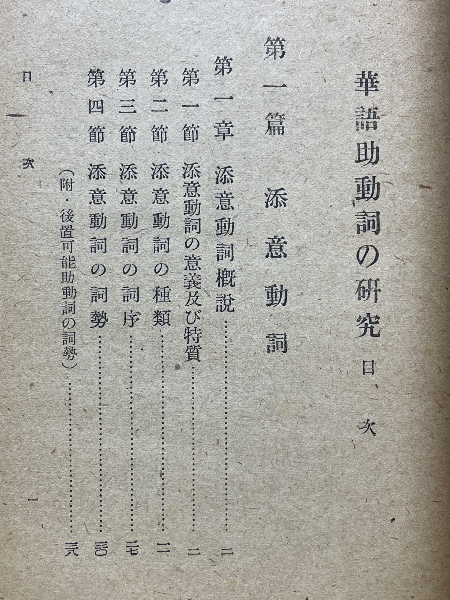 華語助動詞の研究 目次
第一篇 添意動詞
第一章 添意動詞概説……二
第一節 添意動詞の意義及び特質……二
第二節 添意動詞の種類……一一
第三節 添意動詞の詞序……二七
第四節 添意動詞の詞勢……三〇
(附・後置可能助動詞の詞勢)……三八
目次 一